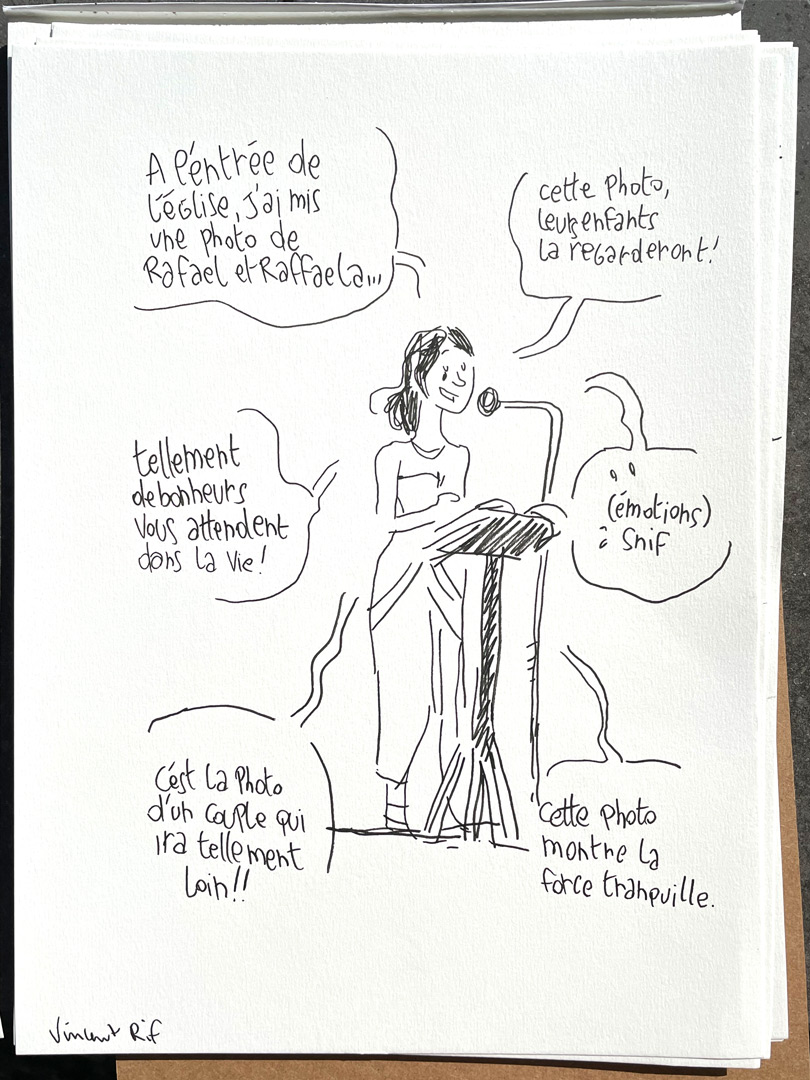 A l'éntrée de
l'église, j'ai mis
une photo de
Rafael et Raffaela...
cette photo,
leurs enfants
la regarderont!
tellement
de bonheurs
vous attendent
dans la vie!
(émotions)
snif
c'est la photo
d'un couple qui
ira tellement
loin!!
Cette photo
montre la
force tranquille.
Vincent Rif